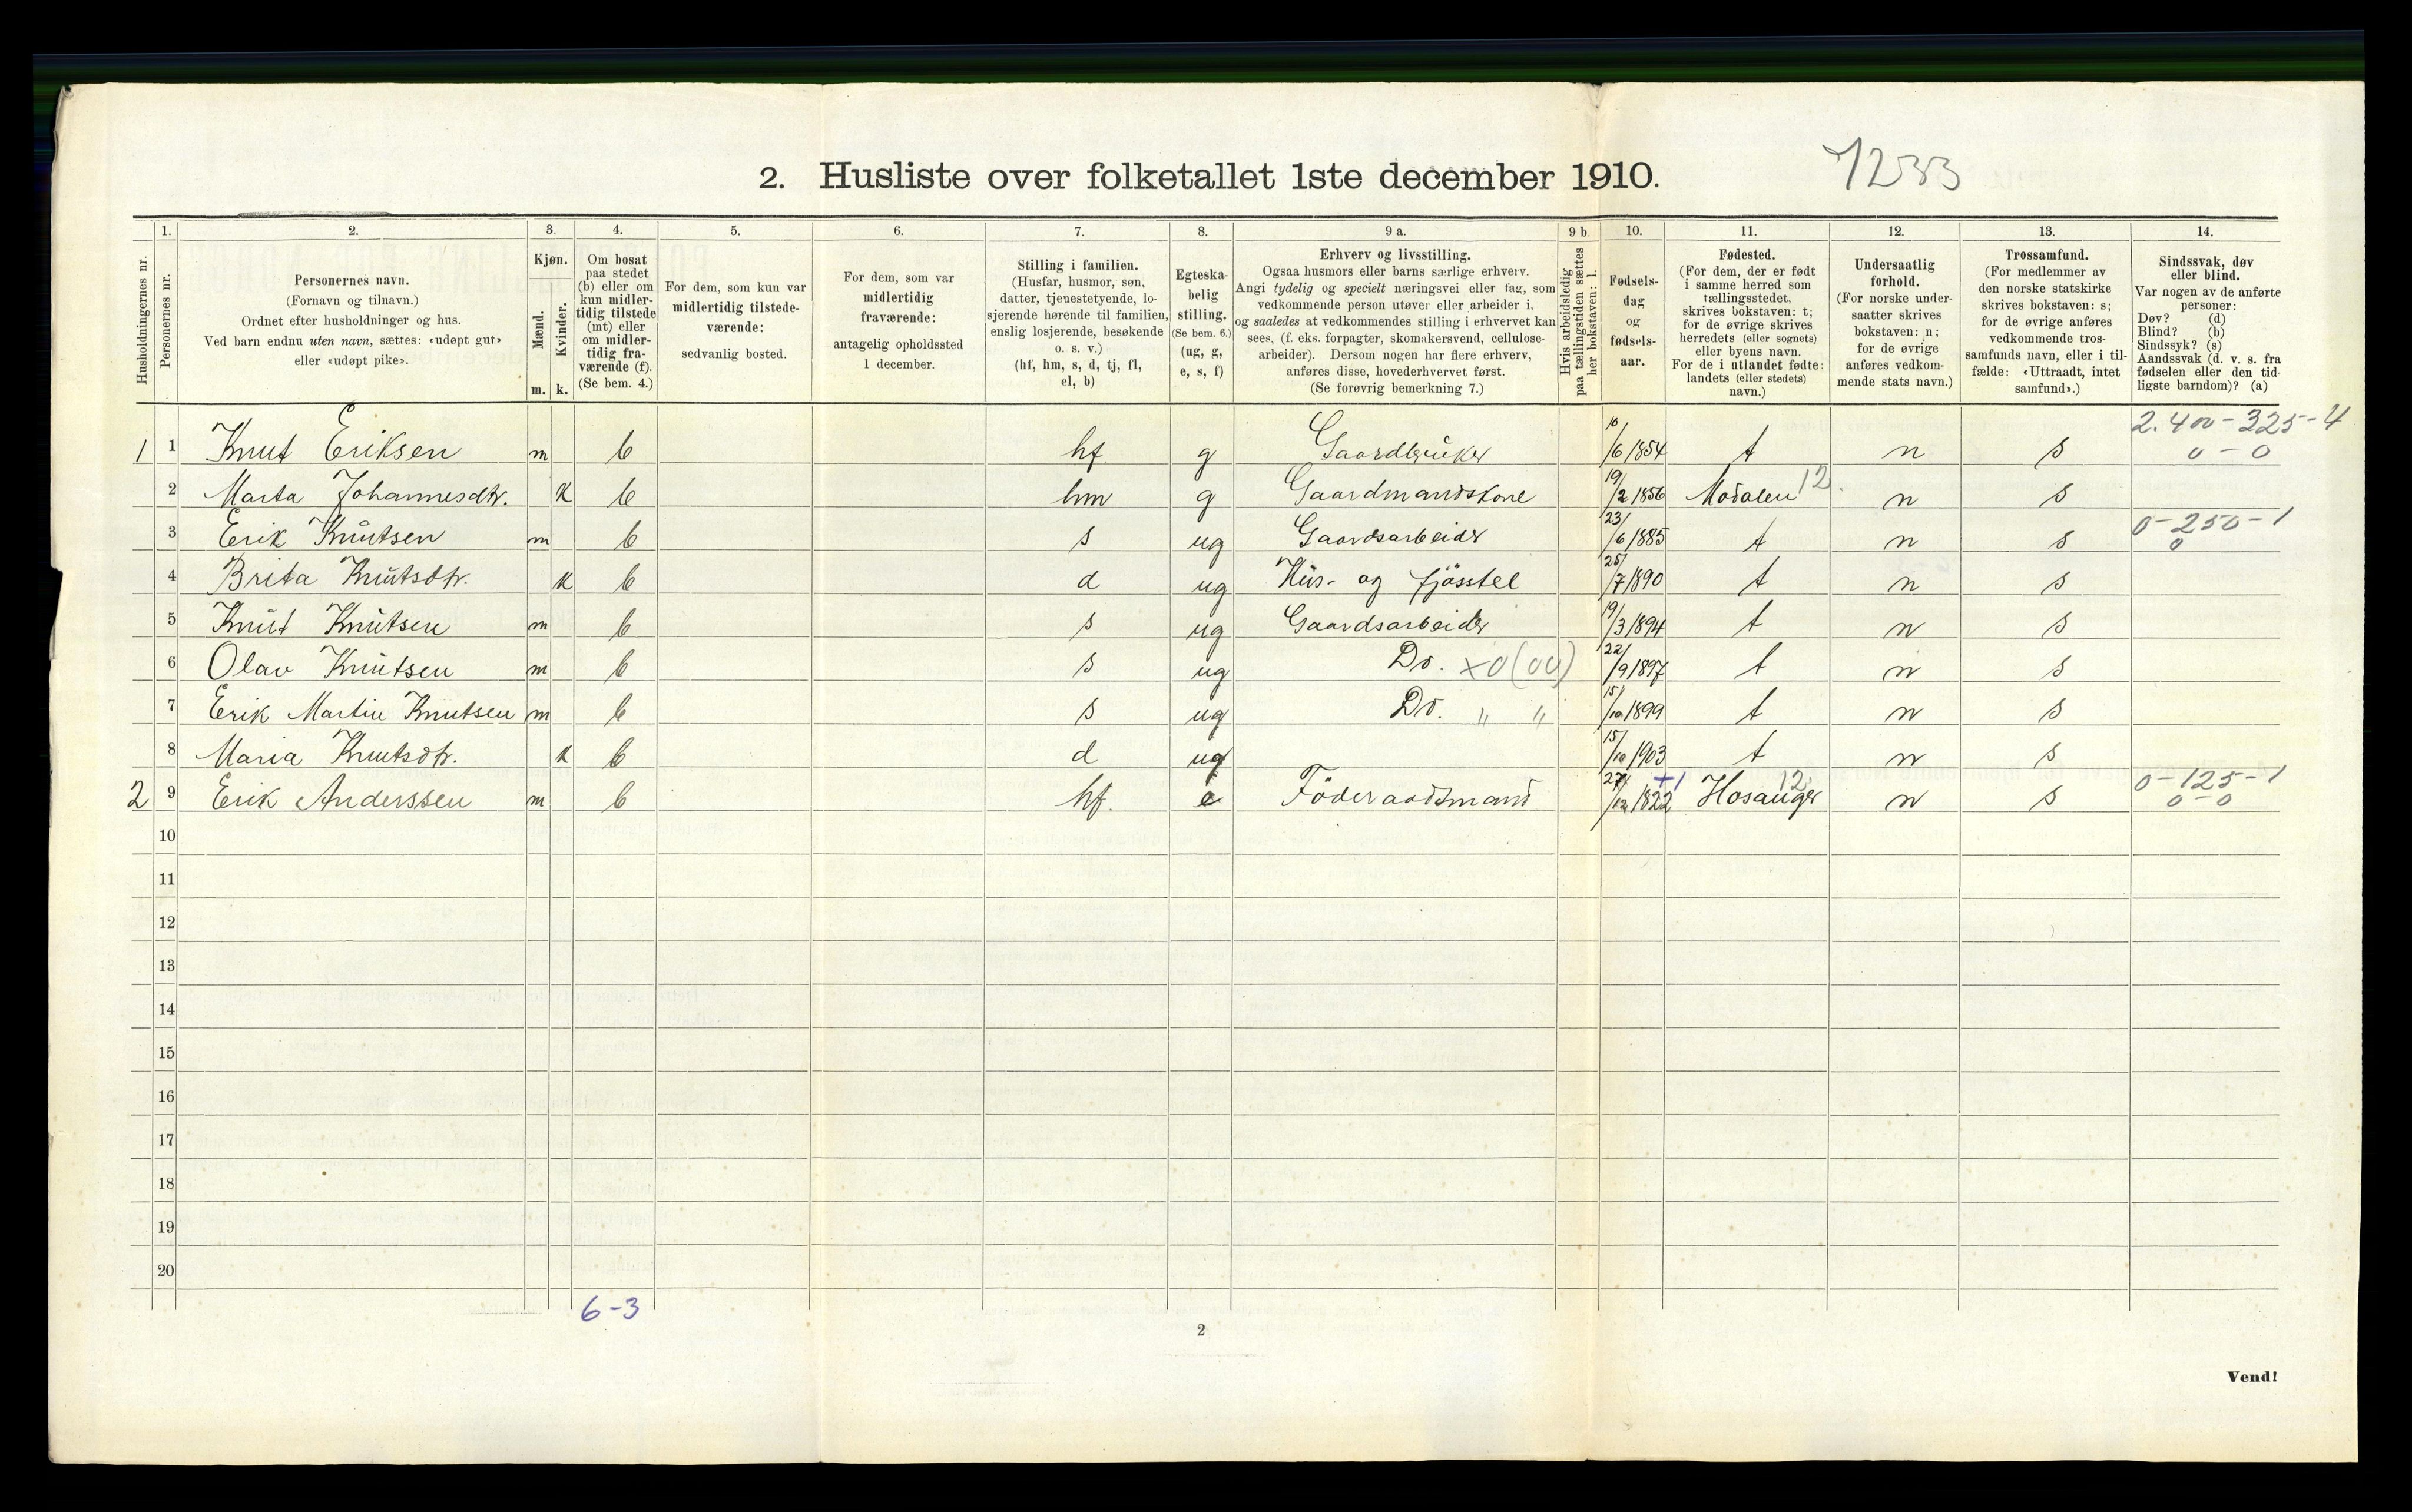 2. Husliste over folketallet 1ste december 1910.
7233
Husholdningernes nr.
1. Personernes nr.
2. Personernes navn.
(Fornavn og tilnavn.)
Ordnet efter husholdninger og hus.
Ved barn endnu uten navn, sættes: «udøpt gut»
eller «udøpt pike».
3. Kjøn.
Mænd. Kvinder.
m. k.
4. Om bosat
paa stedet
(b) eller om
kun midler-
tidig tilstede
(mt) eller
om midler-
tidig fra-
værende (f).
(Se bem. 4.)
5. For dem, som kun var
midlertidig tilstede-
værende:
sedvanlig bosted.
6. For dem, som var
midlertidig
fraværende:
antagelig opholdssted
1 december.
7. Stilling i familien.
(Husfar, husmor, søn,
datter, tjenestetyende, lo-
sjerende hørende til familien,
enslig losjerende, besøkende
o. s. v.)
(hf, hm, s, d, tj, fl,
el, b)
8. Egteska-
belig
stilling.
(Se bem. 6.)
(ug, g,
e, s, f)
9 a. Erhverv og livsstilling.
Ogsaa husmors eller barns særlige erhverv.
Angi tydelig og specielt næringsvei eller fag, som
vedkommende person utøver eller arbeider i,
og saaledes at vedkommendes stilling i erhvervet kan
sees, (f. eks. forpagter, skomakersvend, cellulose-
arbeider). Dersom nogen har flere erhverv,
anføres disse, hovederhvervet først.
(Se forøvrig bemerkning 7.)
9 b. Hvis arbeidsledig
paa tællingstiden sættes
her bokstaven: l.
10. Fødsels-
dag
og
fødsels-
aar.
11. Fødested.
(For dem, der er født
i samme herred som
tællingsstedet,
skrives bokstaven: t;
for de øvrige skrives
herredets (eller sognets)
eller byens navn.
For de i utlandet fødte:
landets (eller stedets)
navn.)
12. Undersaatlig
forhold.
(For norske under-
saatter skrives
bokstaven: n;
for de øvrige
anføres vedkom-
mende stats navn.)
13. Trossamfund.
(For medlemmer av
den norske statskirke
skrives bokstaven: s;
for de øvrige anføres
vedkommende tros-
samfunds navn, eller i til-
fælde: «Uttraadt, intet
samfund».)
14. Sindssvak, døv
eller blind.
Var nogen av de anførte
personer:
Døv? (d)
Blind? (b)
Sindssyk? (s)
Aandssvak (d. v. s. fra
fødselen eller den tid-
ligste barndom)? (a)
1 1 Knut Eriksen m b hf g Gaardbruker 10/6 1854 t n s 2.400-325-4 0-0
2 Marta Johannesdtr. k b hm g Gaardmandskone 19/2 1856 Modalen 12. n s
3 Erik Knutsen m b s ug Gaardsarbeider 23/6 1885 t n s 0-250-1 0
4 Brita Knutsdtr. k b d ug Hus- og fjösstel 25/7 1890 t n s
5 Knut Knutsen m b s ug Gaardsarbeider 19/3 1894 t n s
6 Olav Knutsen m b s ug Do. x0(00) 22/9 1897 t n s
7 Erik Martin Knutsen m b s ug Do. " " 15/10 1899 t n s
8 Maria Knutsdtr. k b d ug 15/10 1903 t n s
2 9 Erik Anderssen m b hf. e Föderaadsmand 27/12 1822 +1 Hosanger 12 n s 0-125-1 0-0
10
11
12
13
14
15
16
17
18
19
20
6-3
2
Vend!